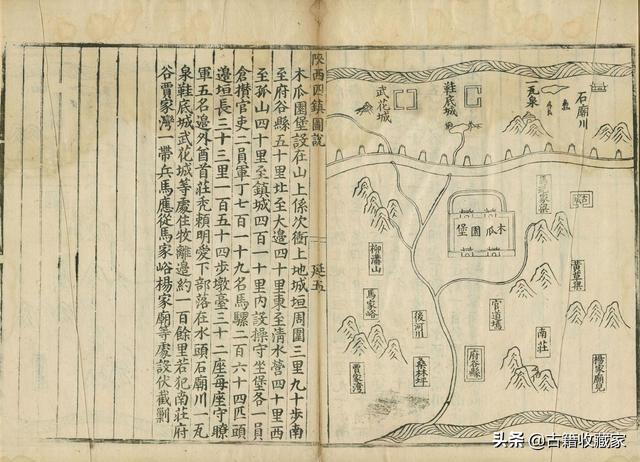 陝西四鎮圖說
延五
木瓜園堡設在山上係次衝上地城垣周圍三里九十步南
至府谷縣五十里北至大邊四十里東至清水營四十里西
至孤山四十里至鎮城四百一十里内設操守坐堡各一員
倉攢官吏二員軍丁七百一十九名馬騾二百六十四匹頭
邊垣長三十三里一百五十四步墩臺三十二座每座守瞭
軍五名邊外酋首莊禿賴明愛下部落在水頭石廟川一瓦
泉鞋底城武花城等處住牧離邊約一百餘里若犯南莊府
谷賈家灣一帶兵馬應從馬家峪楊家廟等處設伏截剿
石廟川
一瓦泉
鞋底城
武花城
木瓜園堡
黃草梁
柳溝山
馬家峪
官道墕
後河川
南莊
楊家廟兒
府谷縣
桑林坪
賈家灣
头条 @古籍收藏家